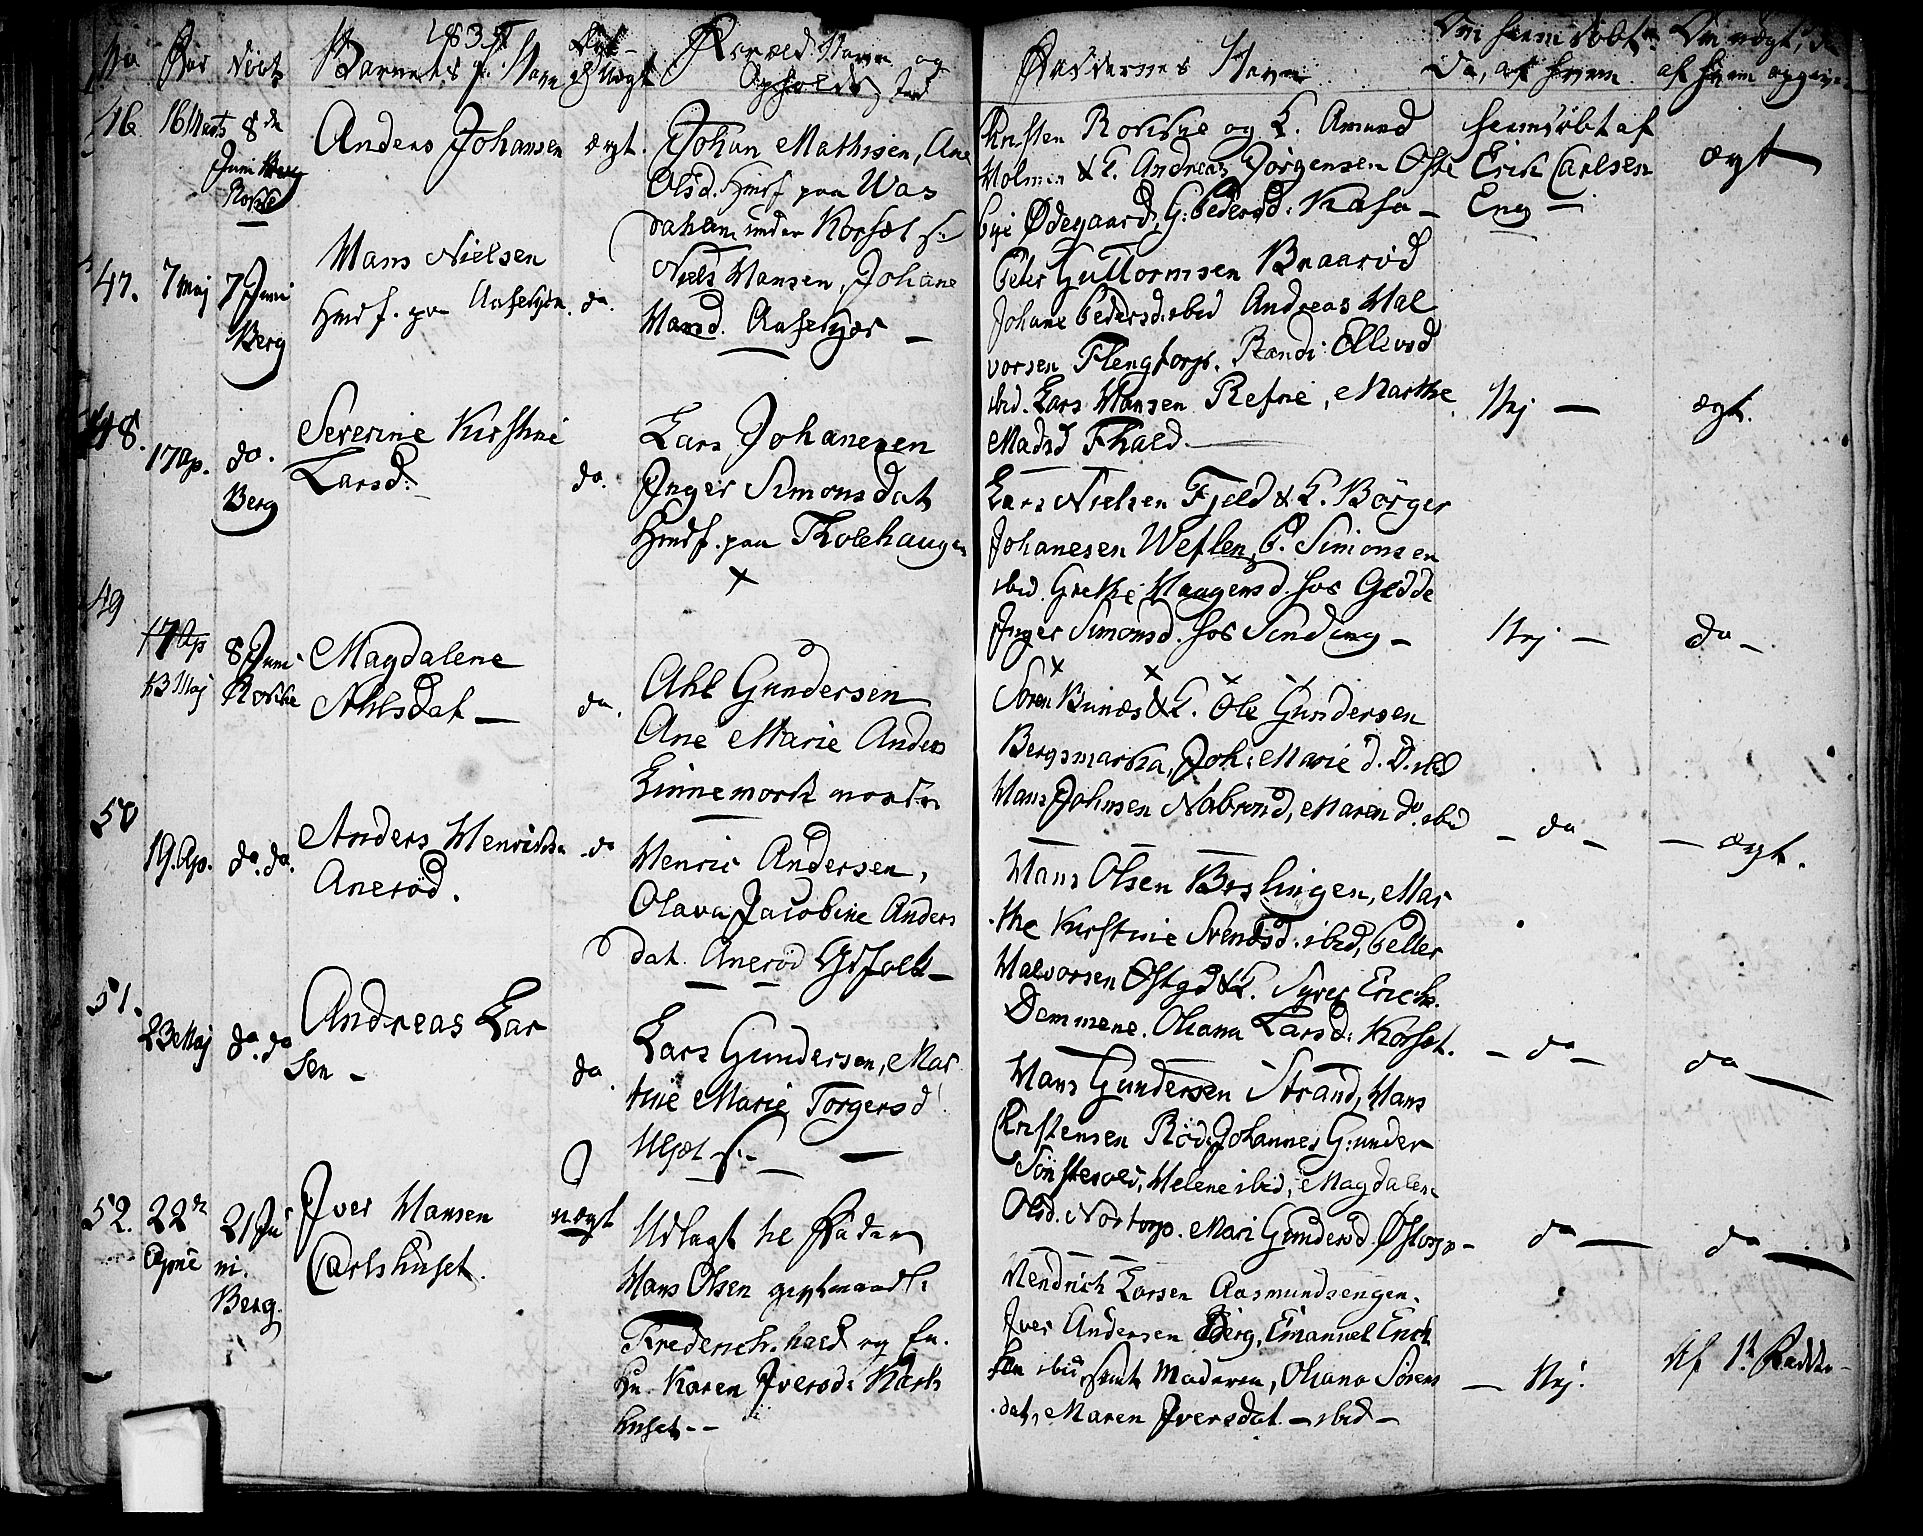 1835
No Aar Barnets Navn Foræld. Navn og
Ophold Faddernes Navn Om hiemdöbt
da, af hvem Om uægt,
af hvem
46. 16 Marts 8de
Juni Berg
Rokke
Anders Johansen ægt.
Johan Mathisen, Ane
Olsd. Hmdf paa Was
under Korsæt
Kristen Rokke og K. Amund
Holmen & K. Andreas Jörgensen
Ödegaard, G. Pedersd.
hiemdöbt af
Erik Carlsen
Eng —
ægt
47. 7 Maj 7 Juni
Berg
Hans Nielsen
Hmdf. paa
do.
Niels Hansen, Johane
Hansd.
Peter Guttormsen Braaröd
Johane Pedersd. ibid Andreas Hal
vorsen Flengtorp. Randi Ellevsd
ibid. Lars Hansen Refne, Marthe
Madsd Fhald.
Nej —
ægt.
48. 17 Ap. do.
Berg
Severine Kirstine
Larsd:
do.
Lars Johanesen
Inger Simonsdat
Hmdf. paa Tholehaugen
Lars Nielsen Fjeld & K. Börger
Johanesen Weflen, P. Simonsen
ibid. Grethe Haugensd. hos Gedde
Inger Simonsd. hos Sinding —
Nej —
do —
49
17 Ap
13 Maj
8 Juni
Rokke
Magdalene
Ahlsdat —
do.
Ahl Gundersen
Ane Marie Anders
Linnemork nordre
Sören Bunæs & K. Ole Gundersen
Bergsmarka, Joh: Marie d. D. ibid
Hans Johnsen Nabrond, Maren do. ibid
— do —
— ægt.
50
19. Ap. do. do.
Anders Henriksen
Aneröd.
do
Henric Andersen,
Olava Jacobine Anders
dat. Aneröd Gdfolk —
Hans Olsen Beslingen, Mar
the Kirstine Svendsd. ibid, Peller
Halvorsen Östgd & K. Syver Erich.
Demmene. Oliana Larsd: Korsæt.
— do —
do —
51.
23 Maj do. do
Andreas Lar
sen —
do.
Lars Gundersen, Mar
tine Marie Torgersd.
Hans Gundersen Strand, Hans
Kristensen Röd, Johannes Gunder
Helene ibid, Magdalene
Olsd. Nortorp. Mari Gundersd. Östorp —
do —
do —
52. 22de
April
21 Ju
ni.
Berg.
Iver Hansen
Carlshuset.
uægt
Udlagt til Fader
Hans Olsen
Frederichshald og
Karen Iversd: Karls
huset. --
Hendrich Larsen Aasmundsengen.
Iver Andersen Berg, Emanuel Erich
sen ibid, samt Moderen, Oliana Sören
dat, Maren Iversdat — ibid —
— Nej.
Af 1st Fadder —